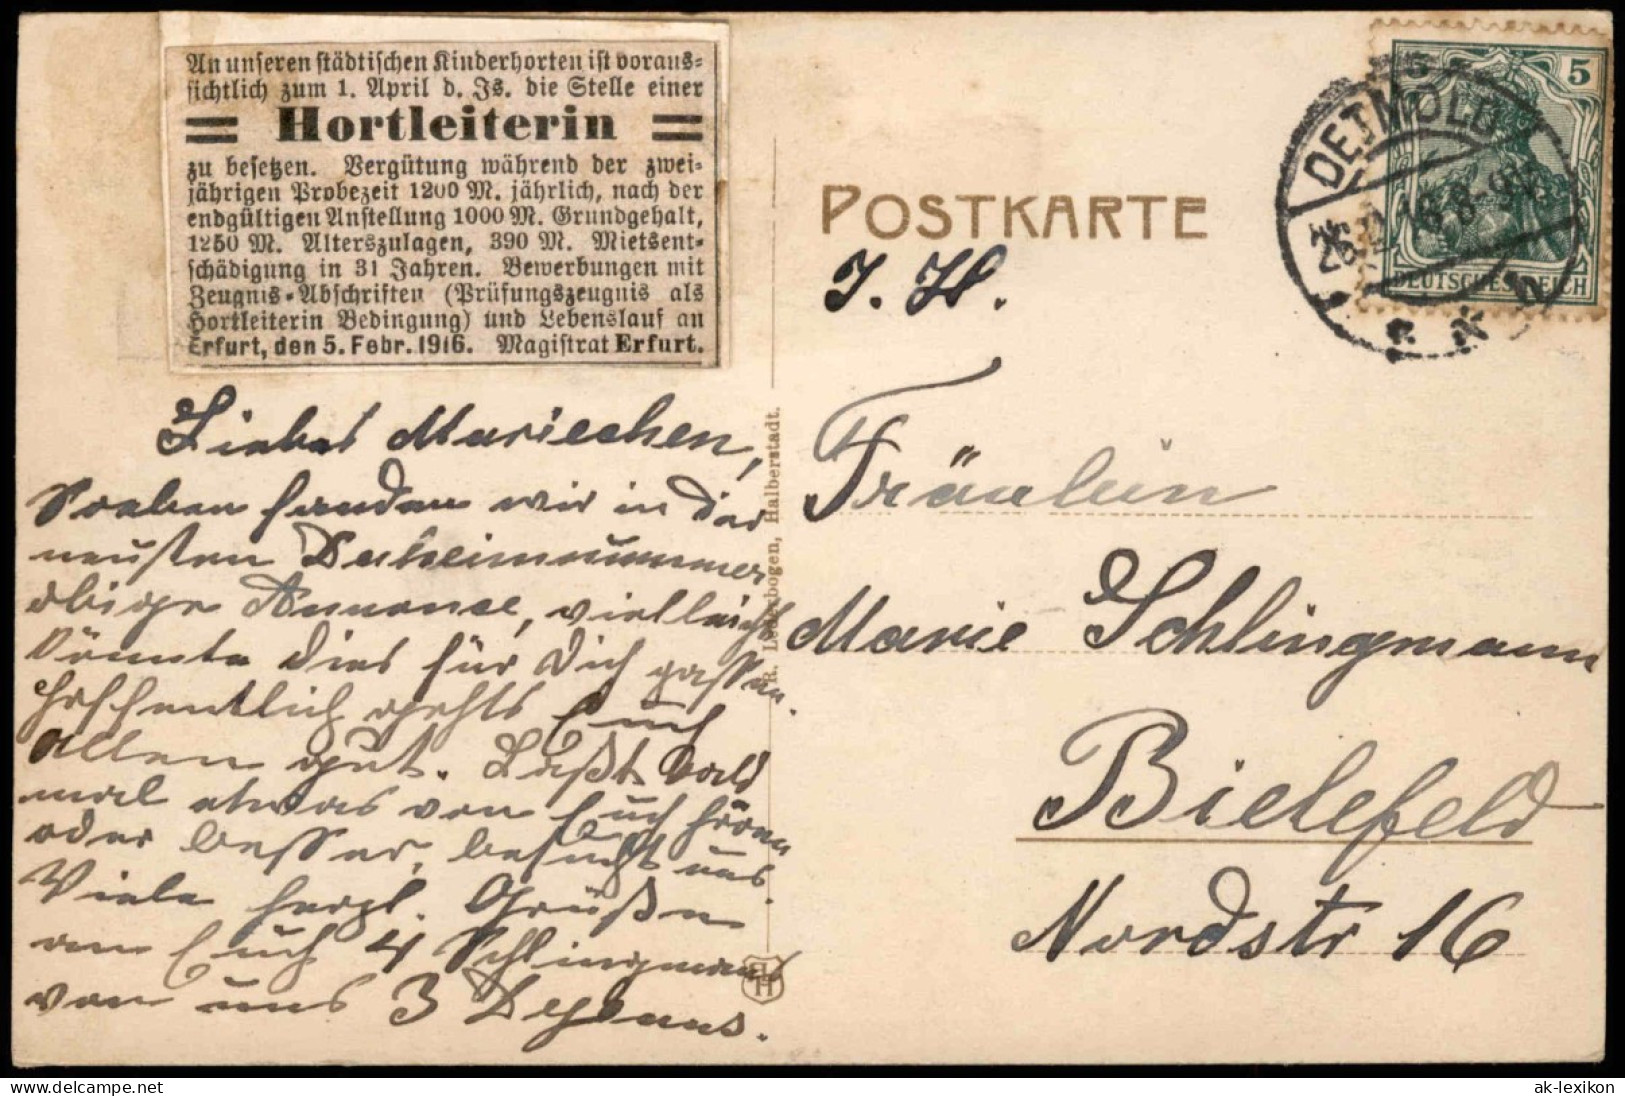 An unseren städtischen Kinderhorten ist voraus=
sichtlich zum 1. April d. Js. die Stelle einer
= Hortleiterin =
zu besetzen. Vergütung während der zwei=
jährigen Probezeit 1200 M. jährlich, nach der
endgültigen Anstellung 1000 M. Grundgehalt,
1250 M. Alterszulagen, 390 M. Mietsent=
schädigung in 31 Jahren. Bewerbungen mit
Zeugnis=Abschriften (Prüfungszeugnis als
Hortleiterin Bedingung) und Lebenslauf an
Erfurt, den 5. Febr. 1916. Magistrat Erfurt.
Liebes Mariechen,
Soeben fanden wir in der
neusten Daheimnummer
obige Annonce, vielleicht
könnte dies für Dich passen.
Hoffentlich gehts Euch
allen gut. Laßt bald
mal etwas von Euch hören
oder besser, besucht uns.
Viele herzl. Grüßen
an Euch 4 Schlingmanns
von uns 3
R. Lederbogen, Halberstadt.
POSTKARTE
J. H.
Fräulein
Marie Schlingmann
Bielefeld
Nordstr 16
5
DEUTSCHES REICH
DETMOLD
26. 2. 16. 8-9V.
ak-ansichtskarten.de
ak-lexikon